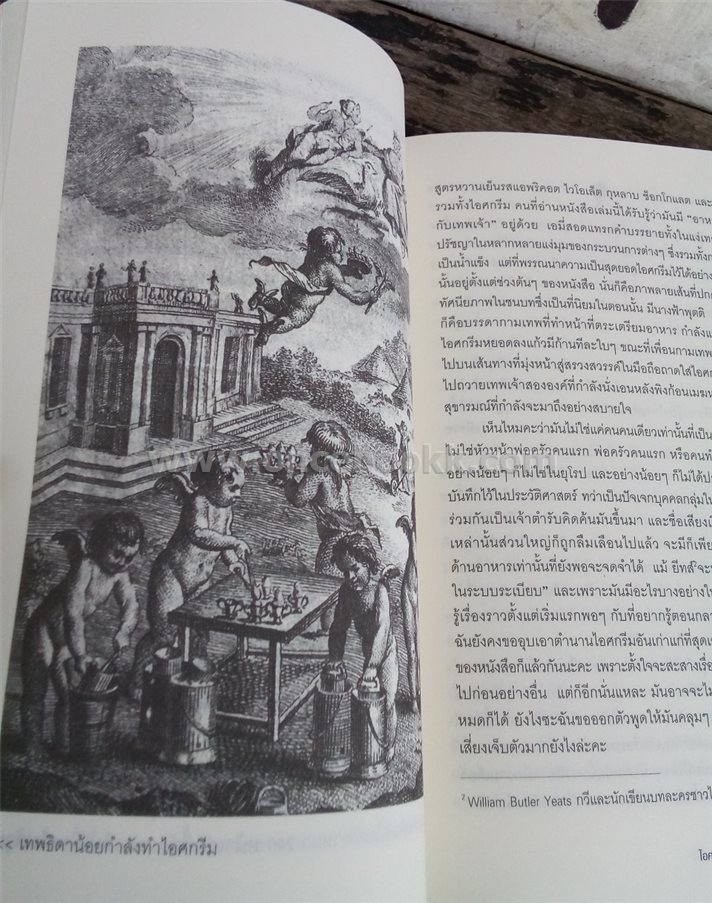 << เทพธิดาน้อยกำลังทำไอศกรีม
สูตรหวานเย็นรสแอพริคอต ไวโอเล็ต กุหลาบ ช็อกโกแลต และ
รวมทั้งไอศกรีม คนที่อ่านหนังสือเล่มนี้ได้รับรู้ว่ามันมี "อาห
กับเทพเจ้า" อยู่ด้วย เอมี่สอดแทรกคำบรรยายทั้งในแง่เท
ปรัชญาในหลากหลายแง่มุมของกระบวนการต่างๆ ซึ่งรวมทั้งก
เป็นน้ำแข็ง แต่ที่พรรณนาความเป็นสุดยอดไอศกรีมไว้ได้อย่าง
นั้นอยู่ตั้งแต่ช่วงต้นๆ ของหนังสือ นั่นก็คือภาพลายเส้นที่ปก
ทัศนียภาพในชนบทซึ่งเป็นที่นิยมในตอนนั้น มีนางฟ้าพุตติ
ก็คือบรรดากามเทพที่ทำหน้าที่ตระเตรียมอาหาร กำลังแ
ไอศกรีมหยอดลงแก้วมีก้านทีละใบๆ ขณะที่เพื่อนกามเทพ
ไปบนเส้นทางที่มุ่งหน้าสู่สรวงสวรรค์ในมือถือถาดใส่ไอศก
ไปถวายเทพเจ้าสององค์ที่กำลังนั่งเอนหลังพิงก้อนเมฆ
สุขารมณ์ที่กำลังจะมาถึงอย่างสบายใจ
เห็นไหมคะว่ามันไม่ใช่แค่คนคนเดียวเท่านั้นที่เป็น
ไม่ใช่หัวหน้าพ่อครัวคนแรก พ่อครัวคนแรก หรือคนทำ
อย่างน้อยๆ ก็ไม่ใช่ในยุโรป และอย่างน้อยๆ ก็ไม่ได้ป
บันทึกไว้ในประวัติศาสตร์ ทว่าเป็นปัจเจกบุคคลกลุ่มใน
ร่วมกันเป็นเจ้าตำรับคิดค้นมันขึ้นมา และชื่อเสียงเ
เหล่านั้นส่วนใหญ่ก็ถูกลืมเลือนไปแล้ว จะมีก็เพีย
ด้านอาหารเท่านั้นที่ยังพอจะจดจำได้ แม้ ยีทส์²จะ
ในระบบระเบียบ" และเพราะมันมีอะไรบางอย่างใ
รู้เรื่องราวตั้งแต่เริ่มแรกพอๆ กับที่อยากรู้ตอนกล
ฉันยังคงขออุบเอาตำนานไอศกรีมอันเก่าแก่ที่สุดเ
ของหนังสือก็แล้วกันนะคะ เพราะตั้งใจจะสะสางเรื่อ
ไปก่อนอย่างอื่น แต่ก็อีกนั่นแหละ มันอาจจะไม่
หมดก็ได้ ยังไงซะฉันขอออกตัวพูดให้มันคลุมๆ
เสี่ยงเจ็บตัวมากยังไงล่ะคะ
² William Butler Yeats กวีและนักเขียนบทละครชาวไ
ไอศ